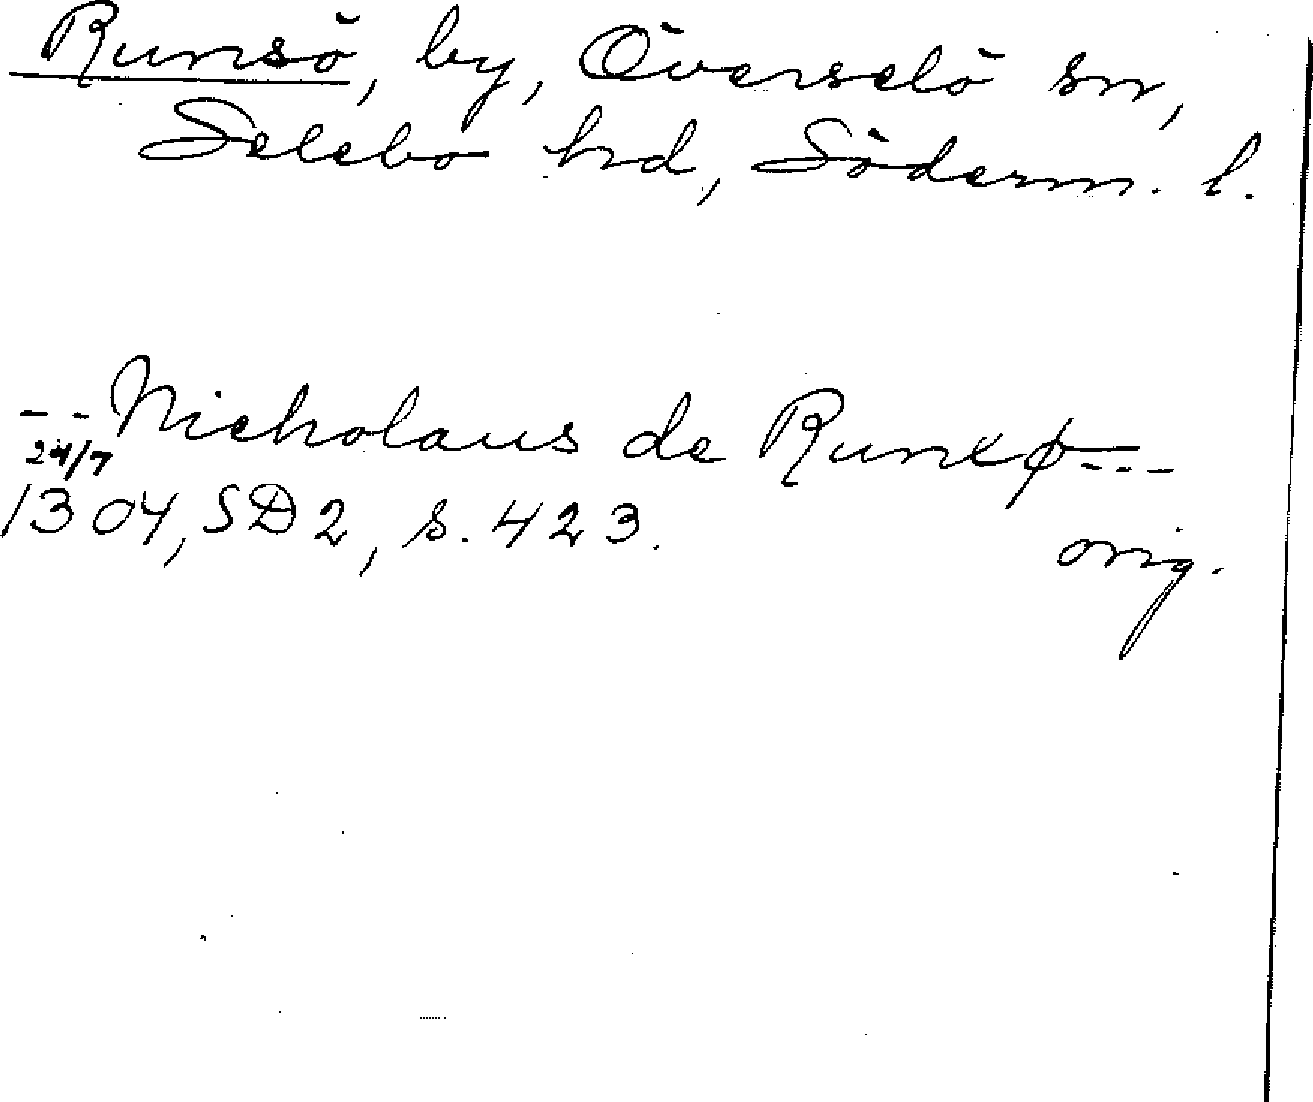 Runsö, by, Överselö sn,
Selebo hd, Söderm. l.
-- Nicholaus de Runxø---
24/7
1304, SD 2, s. 423.
orig.